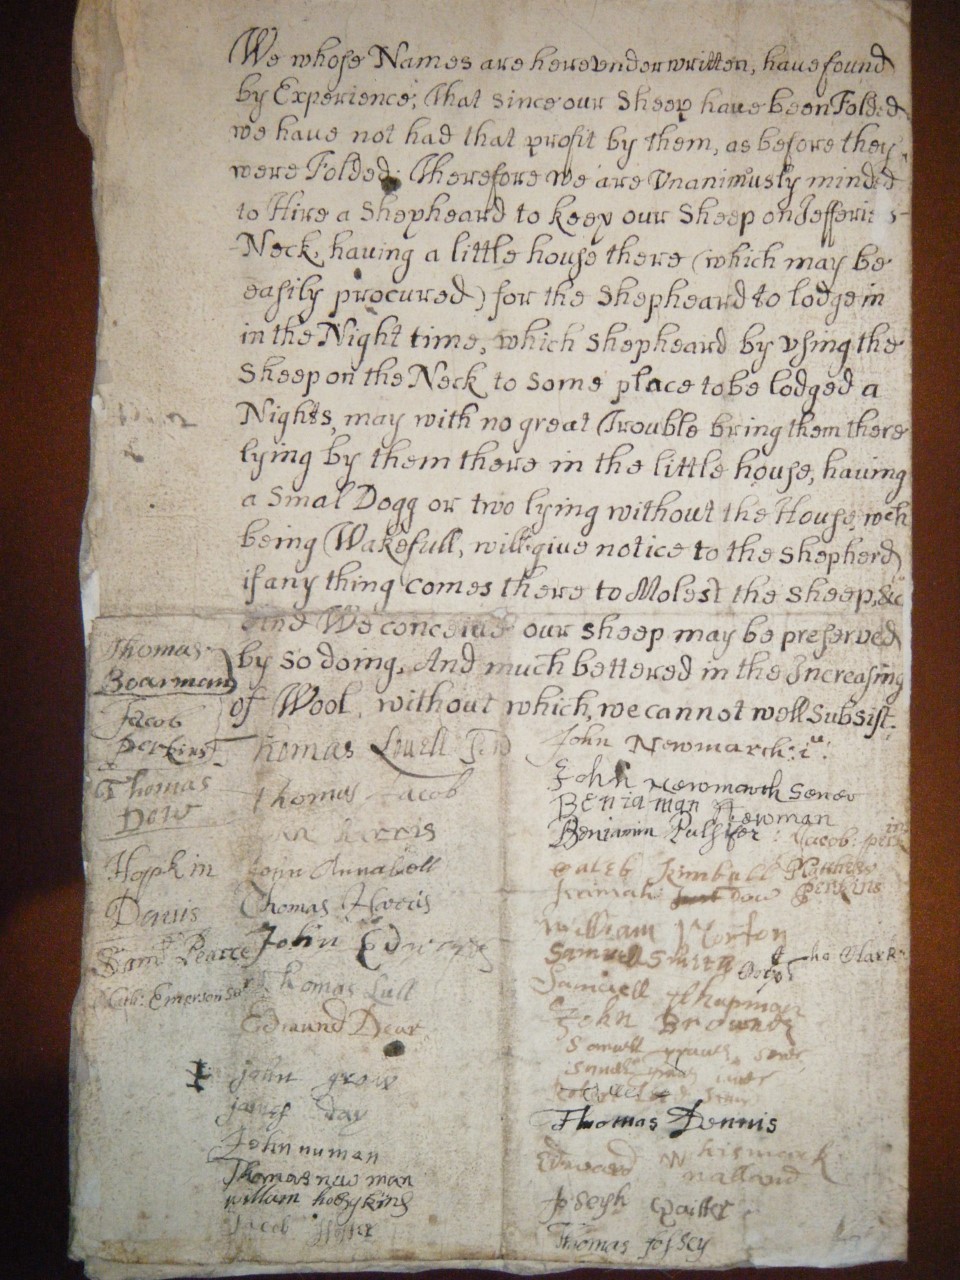 We whose Names are herevnder written, have found
by Experience; That since our Sheep have been Folded
we have not had that profit by them, as before they
were Folded; Therefore we are Vnanimusly minded
to Hire a Shepheard to keep our Sheep on Jefferi s-
Neck, having a little house there (which may be
easily procured) for the Shepheard to lodge in
in the Night time, which Shepheard by vsing the
Sheep on the Neck to some place to be lodged a
Nights, may with no great Trouble bring them there
lying by them there in the little house, having
a Smal Dogg or two lying without the House, wch
being Wakefull, will give notice to the Shepherd
if any thing comes there to Molest the Sheep, &c
And We conceive our sheep may be preserved
by so doing, And much bettered in the Increasing
of Wool, without which, we cannot well Subsist.
Thomas
Boarman
Jacob
Perkins
Thomas
Dow
Hopkin
Denis
Samll Pearce
Nath: Emerson Senr
Thomas Lovell
Thomas Jacob
Harris
John Annabell
Thomas Harris
John Edwards
Thomas Lull
Edmund Dear
john grow
james day
John numan
Thomas nuw man
william hodgkins
Jacob
John Newmarch: iu:
John Newmarch Sener
Beniaman Newman
Beniamin Pulsifer
Jacob: perkins
Caleb Kimball
Matthew
Perkins
Jerimah Dow
William Norton
Samuel Smith
Samuell Chapman
John Browne
Thomas Dennis
Edward
Joseph Quilter
Thomas fossey